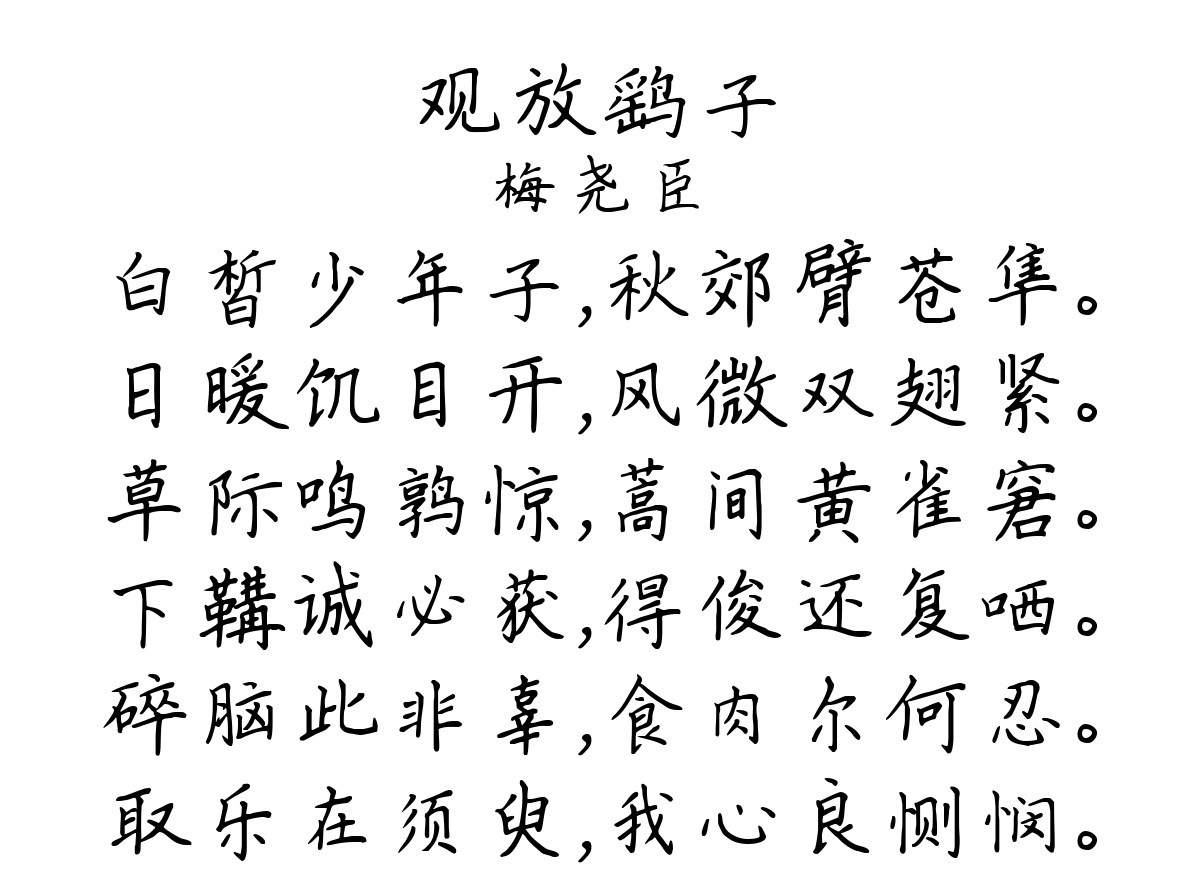 观放鹞子
梅尧臣
白皙少年子,秋郊臂苍隼。
日暖饥目开,风微双翅紧。
草际鸣鹑惊,蒿间黄雀窘。
下鞲诚必获,得俊还复哂。
碎脑此非辜,食肉尔何忍。
取乐在须臾,我心良恻悯。